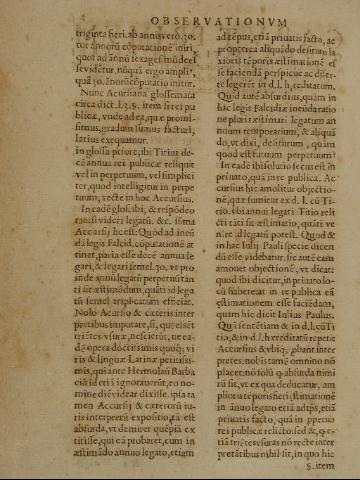 OBSERVATIONVM
triginta fieri. ab annis verò. 30.
tot annorũ cõputatione iniri,
quot ad annũ sexages. mũ deesse
se videtur. nũquã ergo amplius,
quã 30. annorũ cõputatio initur.
Nunc Accursiana glossemata
circa dict. l. 3. §. item si rei publicæ,
vnde ad ea, quæ promisimus,
gradum sumus facturi,
latius exequamur.
in glossa priore, ibi Titius decẽ
annua rei publicæ reliquit
vel in perpetuum, vel simpliciter,
quod intelligitur in perpetuum,
recte in hoc Accursius.
In eadẽ glos. ibi, & respõdeo
quasi videri legatũ. &c. summa
Accursij hæc est: Quòd ad ineũdã
legis Falcid. cõputationẽ attinet,
paria esse decẽ annua legari,
& legari semel 30. vt proinde
annuũ legatũ perpetuũ tanti
sit æstimãdum, quãti id legatũ
semel triplicatum efficiat.
Nolo Accursio & cæteris interpretibus
imputare, si, qui essẽt
triẽtes vsuræ, nescierũt, ne eadẽ
opera doctissimis quoq; viris
& linguæ Latinæ peritissimis,
qui ante Hermolaũ Barba
ciã id erũ ignorauerũt, eo nomine
diẽ videar dixisse. ipsa tamen
Accursij & exterorũ iuris
interpretũ expositio, tã est
absurda, vt demirer quẽpiã extitisse,
qui eã probaret, cum in
æstimãdo annuo legato, etiam
ad tẽpus, etiã priuatis facto, ac
propterea aliquãdo desituro laxioris
tẽporis æstimationẽ esse
faciendã perspicuè ac diserte
legerẽt in d. l. hereditatum.
Quid autẽ absurdius, quàm in
hac legis Falcidiæ ineũda ratione
pluris æstimari legatum annuum
temporarium, & aliquãdo,
vt dixi, desiturum, quàm
quod est futuum perpetuum?
In eadẽ ibi solutio secus est in
priuato, quà in re publica. Accursius
hic amolitur obiectionẽ,
quæ sumitur ex d. l. cũ Titio.
vbi annui legati Titio relicti
tãti sit æstimatio, quãti venire
id legatũ potest. Quod &
in hac Iulij Pauli specie dicendũ
esse videbatur. sic autẽ eam
amouet obiectionẽ, vt dicat:
quod ibi dicitur, in priuato locũ
sibi vertat: in re publica eã
æstimationem esse faciẽdam,
quàm hic dicit Iulius Paulus.
Quã sentẽtiam & in d. l. cũ Titio,
& in d. l. hereditatũ repetit
Accursius & vbiq; probant interpretes.
nobis tamẽ omnino nõ
placet: nõ solũ q absurda nimirũ
sit, vt ex qua deducatur, amplioris
tẽporis fieri æstimationẽ
in annuo legato etiã ad tẽpus, etiã
priuatis facto, quã in perpetuo
rei publicæ relicto: sed &, q etiã
triẽtes vsuras nõ recte interpretãtibus
nihil sit, in quo iam
§. item